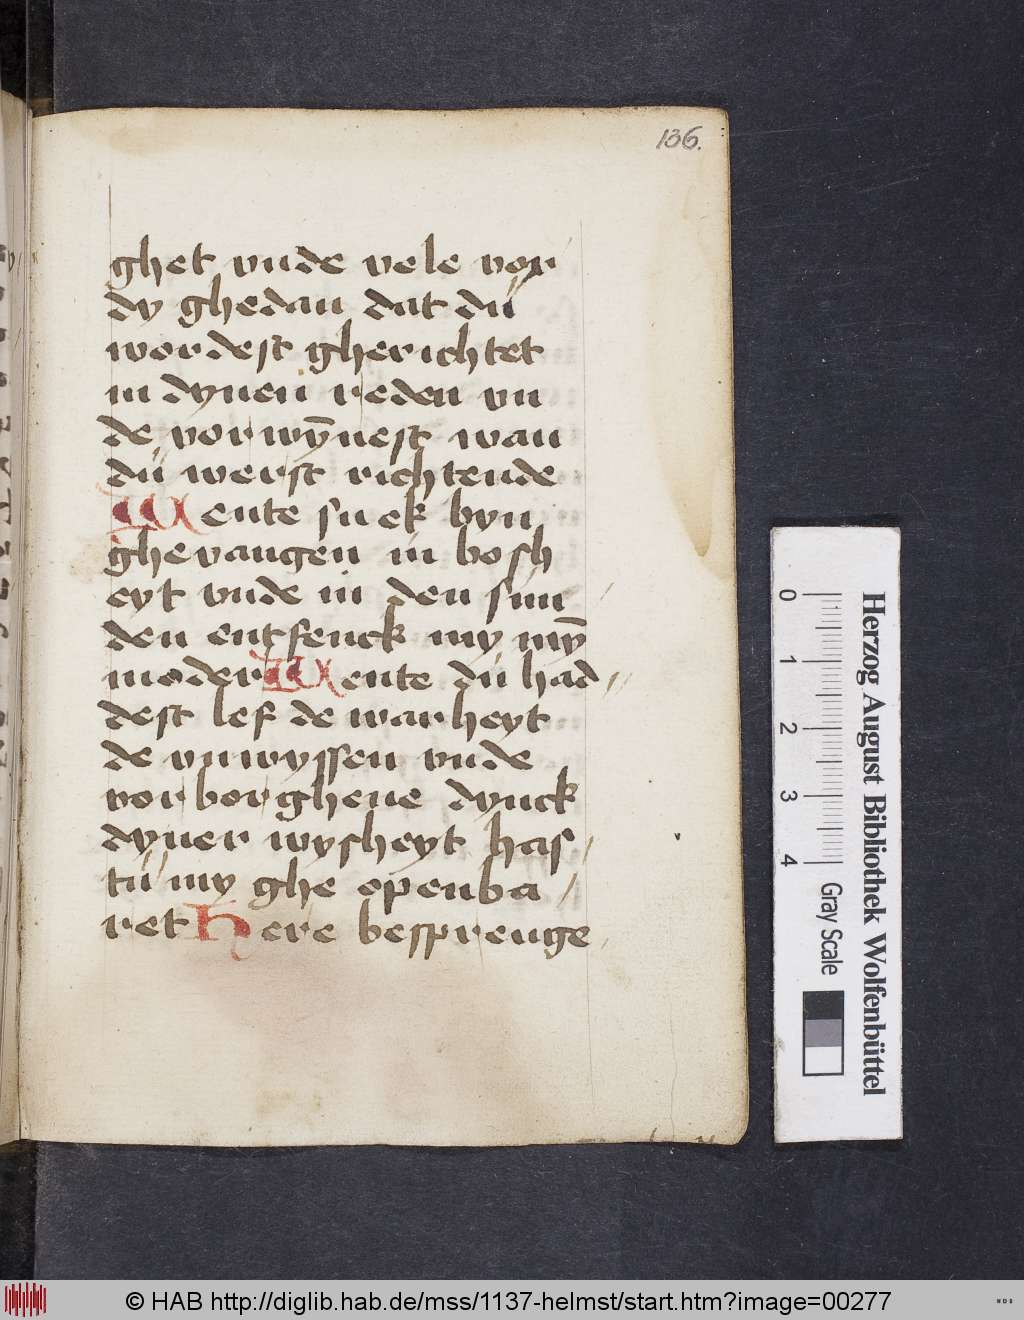 136.
ghet vnde vele vor
dy ghedan dat dů
wordest gherichtet
in dynen reden vn
de vorwȳnest wan
dů werst richtende
Wente su ek byn
ghevangen in bosh
eyt vnde in den sun
den entfenck my mȳ
moder Wente dů had
dest lef de warheyt
de vnwyssen vnde
vorborghene dynck
dyner wysheyt has
tů my ghe openba
ret Here besprenge
Herzog August Bibliothek Wolfenbüttel
0 1 2 3 4
Gray Scale
© HAB http://diglib.hab.de/mss/1137-helmst/start.htm?image=00277